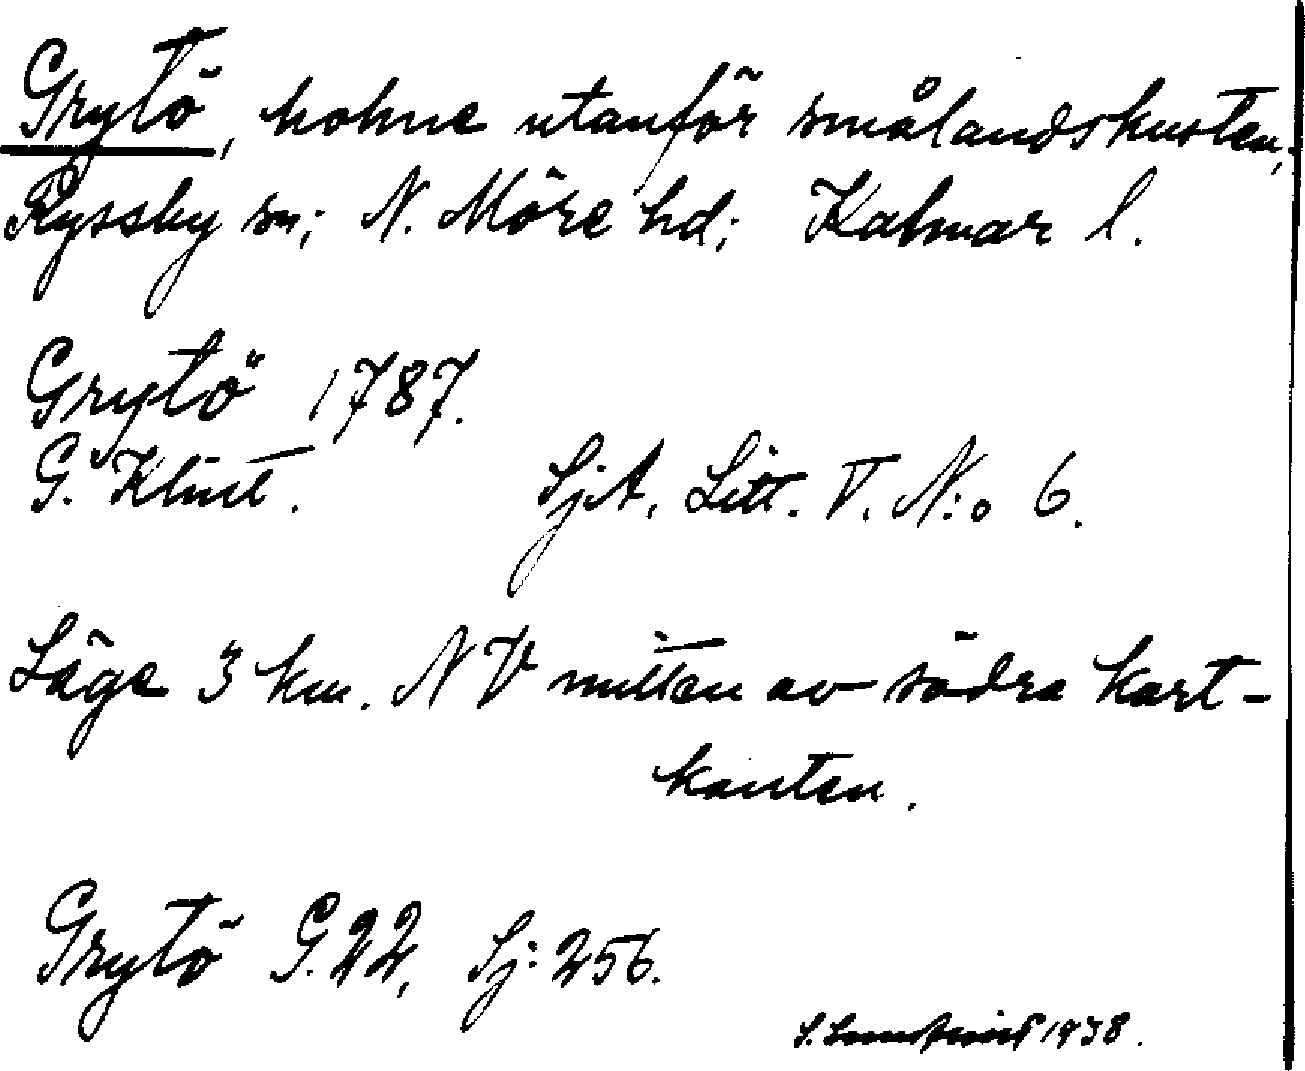 Grytö, holme utanför smålandskusten,
Ryssby sn; N. Möre hd; Kalmar l.
Grytö 1787.
G. Klint. SjA, Litt. V. N:o 6.
Läge 3 km. NV mitten av södra kart-
kanten.
Grytö G. 22, Sj: 256.
S. 1938.